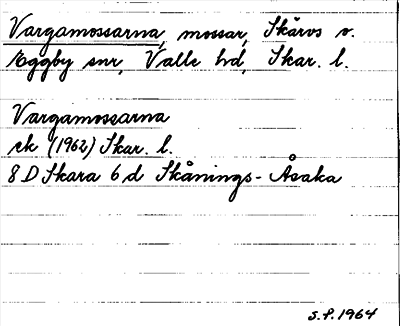 Vargamossarna, mossar, Skärvs o.
Eggby snr, Valle hd, Skar. l.
Vargamossarna
ek (1962) Skar. l.
8 D Skara 6 d Skånings-Åsaka
S.F. 1964